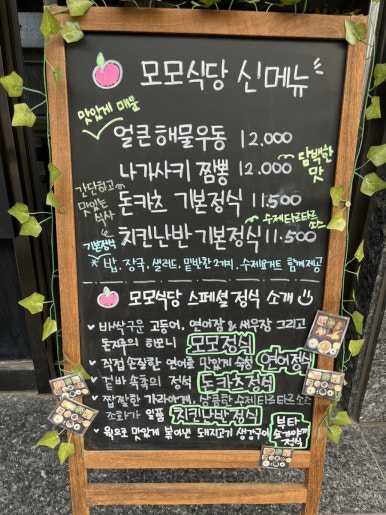 모모식당 신메뉴
맛있게 매운
얼큰해물우동 12.000
나가사키 짬뽕 12.000
담백한 맛
간단하고 맛있는 식사
돈카츠 기본정식 11.500
수제타르타르소스
치킨난반 기본정식 11.500
기본정식
*밥, 장국, 샐러드, 밑반찬 2가지, 수제요거트 함께제공
모모식당 스페셜 정식 소개
바싹구운 고등어, 연어장 & 새우장 그리고
돈지루의 하모니 모모정식
직접 손질한 연어를 맛있게 숙성 연어정식
겉바 속촉의 정석 돈카츠정식
짭짤한 가라아게, 상큼한 수제타르타르소스
조화가 일품 치킨난반정식
윅으로 맛있게 볶아낸 돼지고기 생강구이
부타 쇼가야끼 정식